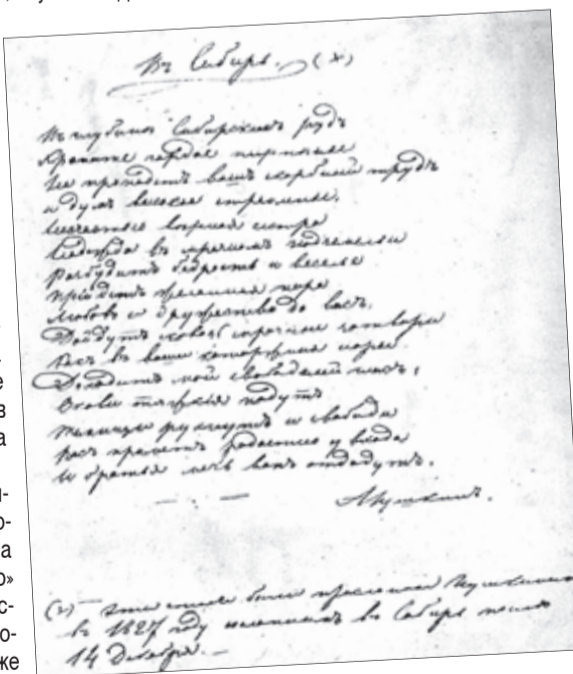 Въ Сибирь. (х)
Въ глубинѣ Сибирскихъ рудъ
Храните гордое терпѣнье
Не пропадетъ вашъ скорбный трудъ
и думъ высокое стремленье.
Несчастью вѣрная сестра
Надежда въ мрачномъ подземельи
Разбудитъ бодрость и веселье
Прiйдетъ желанная пора
Любовь и дружество до васъ
Дойдутъ сквозь мрачные затворы
Какъ въ ваши каторжныя норы
Доходитъ мой свободный гласъ.
Оковы тяжкiя падутъ
Темницы рухнутъ и свобода
Васъ приметъ радостно у входа
И братья мечь вамъ отдадутъ.
А Пушкинъ.
(х) — Эти стихи были присланы Пушкинымъ
въ 1827 году въ Сибирь после
14 Декабря. —
е
в
а
о-
а
о»
с-
о-
же